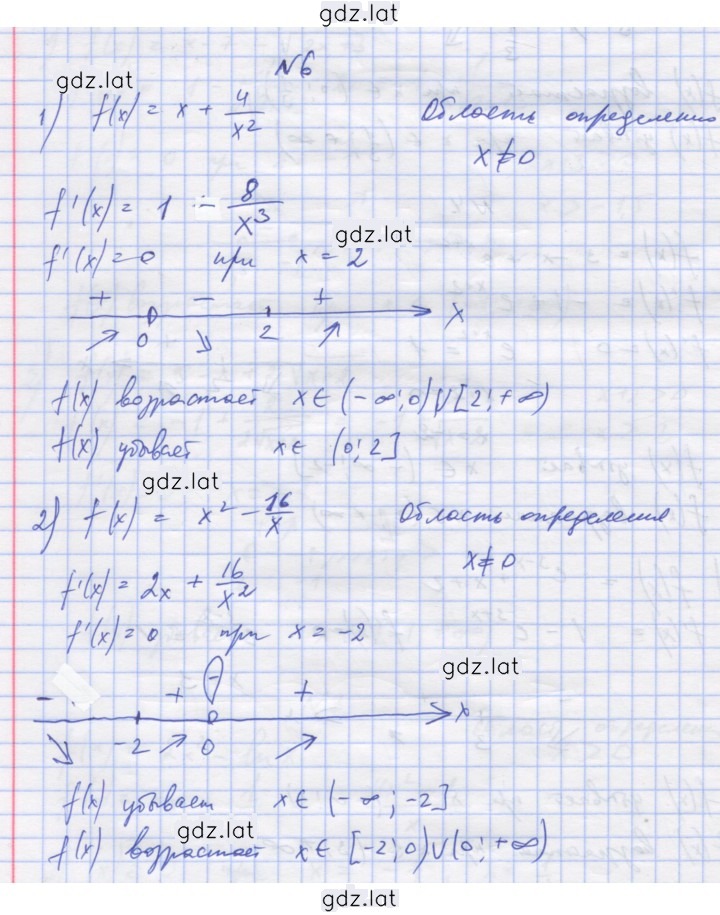 gdz.lat
N6
gdz.lat
1) f(x) = x + 4/x² Область определению
x ≠ 0
f'(x) = 1 - 8/x³
gdz.lat
f'(x) = 0 при x = 2
+ - +
0 2 x
f(x) возрастает x ∈ (-∞; 0) ∪ [2; +∞)
f(x) убывает x ∈ (0; 2]
gdz.lat
2) f(x) = x² - 16/x Область определения
x ≠ 0
f'(x) = 2x + 16/x²
f'(x) = 0 при x = -2
gdz.lat
- + +
-2 0 x
f(x) убывает x ∈ (-∞; -2]
gdz.lat
f(x) возрастает x ∈ [-2; 0) ∪ (0; +∞)
gdz.lat